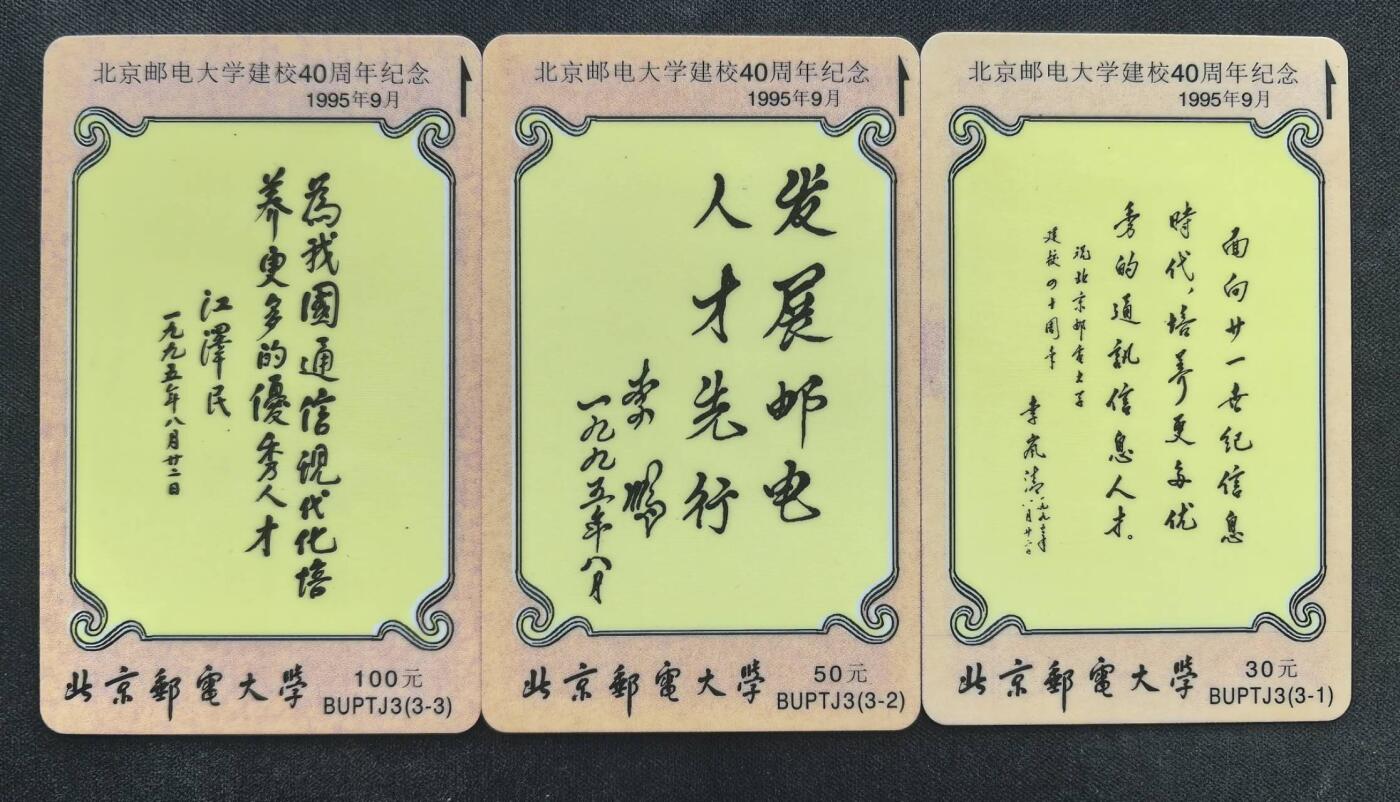 北京邮电大学建校40周年纪念
1995年9月
為我國通信现代化培
养更多的優秀人才
江澤民
一九九五年八月廿二日
北京郵電大學
100元
BUPTJ3(3-3)
北京邮电大学建校40周年纪念
1995年9月
发展邮电
人才先行
李鹏
一九九五年八月
北京郵電大學
50元
BUPTJ3(3-2)
北京邮电大学建校40周年纪念
1995年9月
面向廿一世纪信息
時代，培养更多优
秀的通訊信息人才。
祝北京邮电大学
建校四十周年
李岚清
一九九五年
八月廿二日
北京郵電大學
30元
BUPTJ3(3-1)